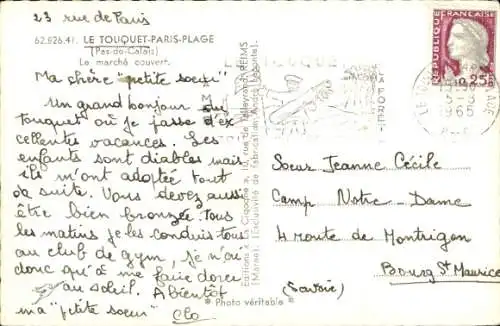 23 rue de Paris
62.826.41. LE TOUQUET-PARIS-PLAGE
(Pas-de-Calais)
Le marché couvert.
Ma chère "petite soeur"
Un grand bonjour du
Touquet où je passe d'ex
cellentes vacances. Les
enfants sont diables mais
ils m'ont adoptée tout
de suite. Vous devez aussi
être bien bronzée. Tous
les matins je les conduis tous
au club de gym, je n'ai
donc qu'à me faire dorer
au soleil. A bientôt
ma "petite soeur" Clo
* Photo véritable *
Editions « La Cigogne » 10, rue de Talleyrand REIMS
(Marne). (Exclusivité de fabrication André
REPUBLIQUE
FRANÇAISE
0,25
LE TOUQUET
1965
Soeur Jeanne Cécile
Camp Notre-Dame
4 Route de Montrigon
Bourg St Maurice
(Savoie)